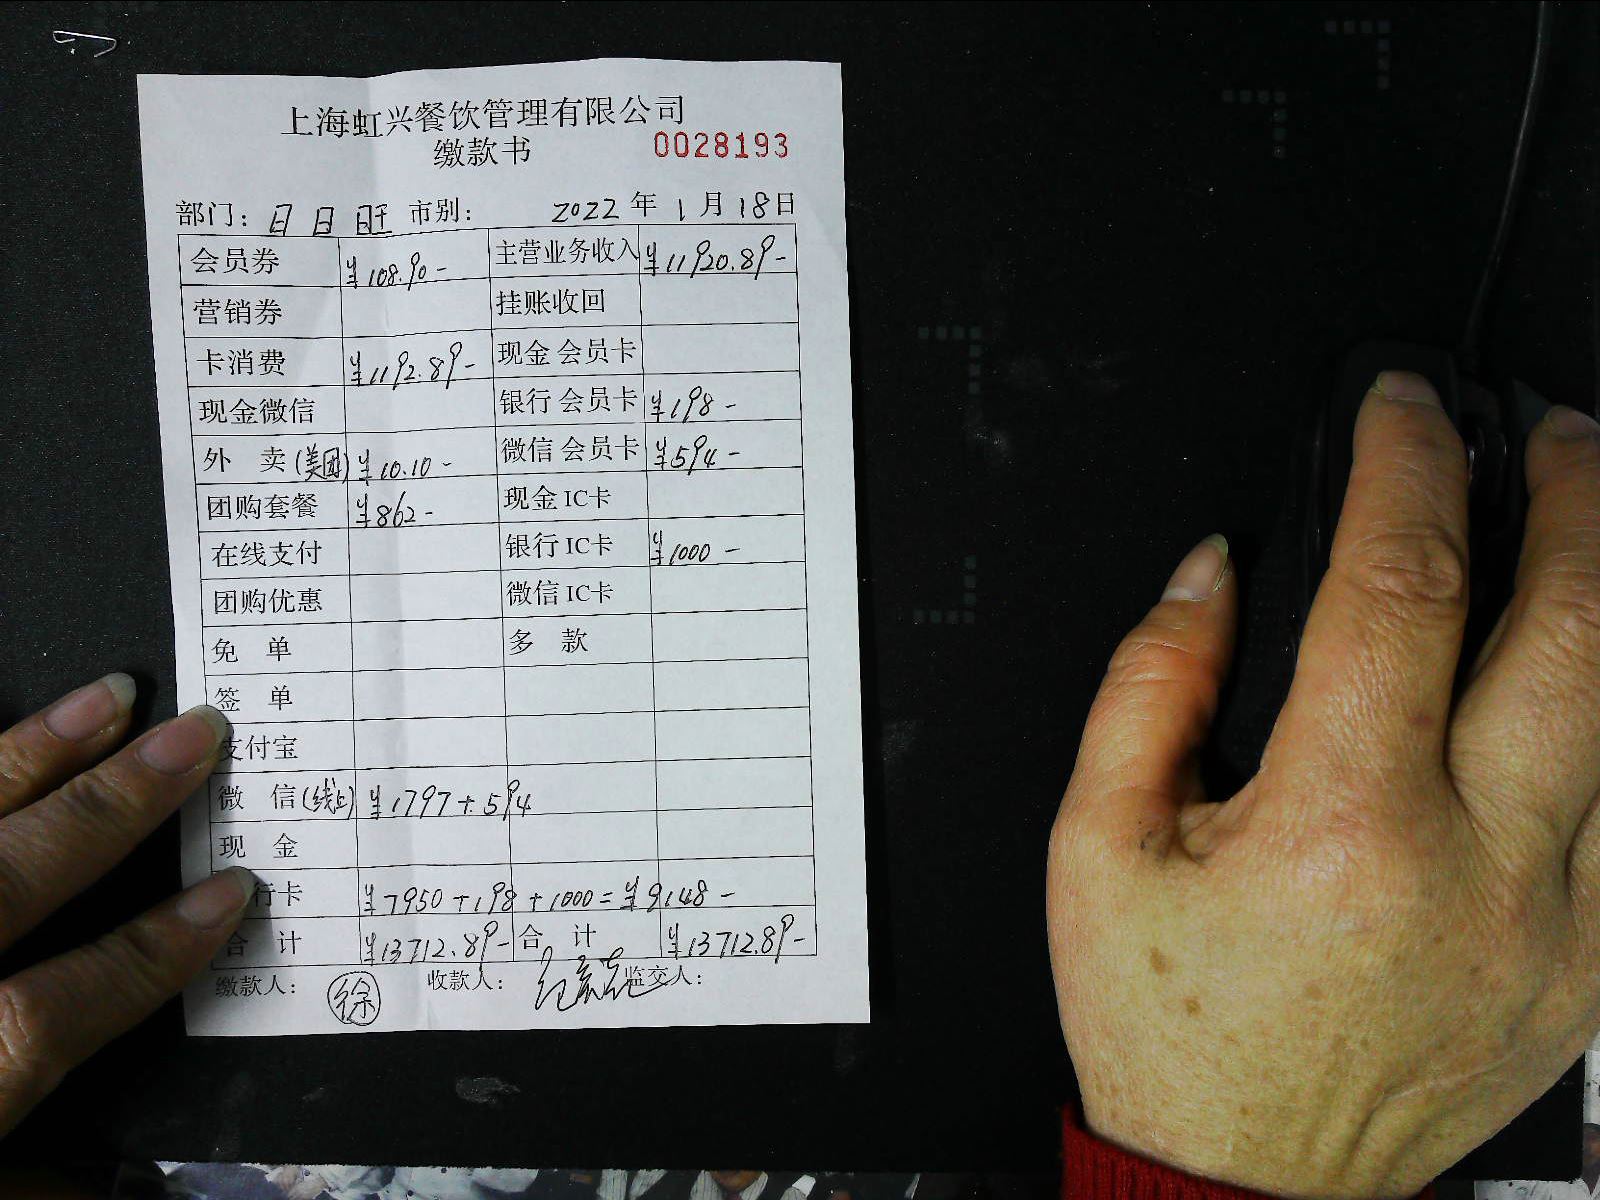 上海虹兴餐饮管理有限公司
缴款书 0028193
部门：日日旺 市别： 2022年1月18日
会员券 ¥108.90- 主营业务收入 ¥11920.89-
营销券 挂账收回
卡消费 ¥1192.89- 现金 会员卡
现金微信 银行 会员卡 ¥198-
外 卖(美团) ¥10.10- 微信 会员卡 ¥594-
团购套餐 ¥862- 现金 IC卡
在线支付 银行 IC卡 ¥1000-
团购优惠 微信 IC卡
免 单 多 款
签 单
支付宝
微 信(线上) ¥1797+594
现 金
行卡 ¥7950+198+1000=¥9148-
合 计 ¥13712.89- 合 计 ¥13712.89-
缴款人： 徐 收款人： 监交人：